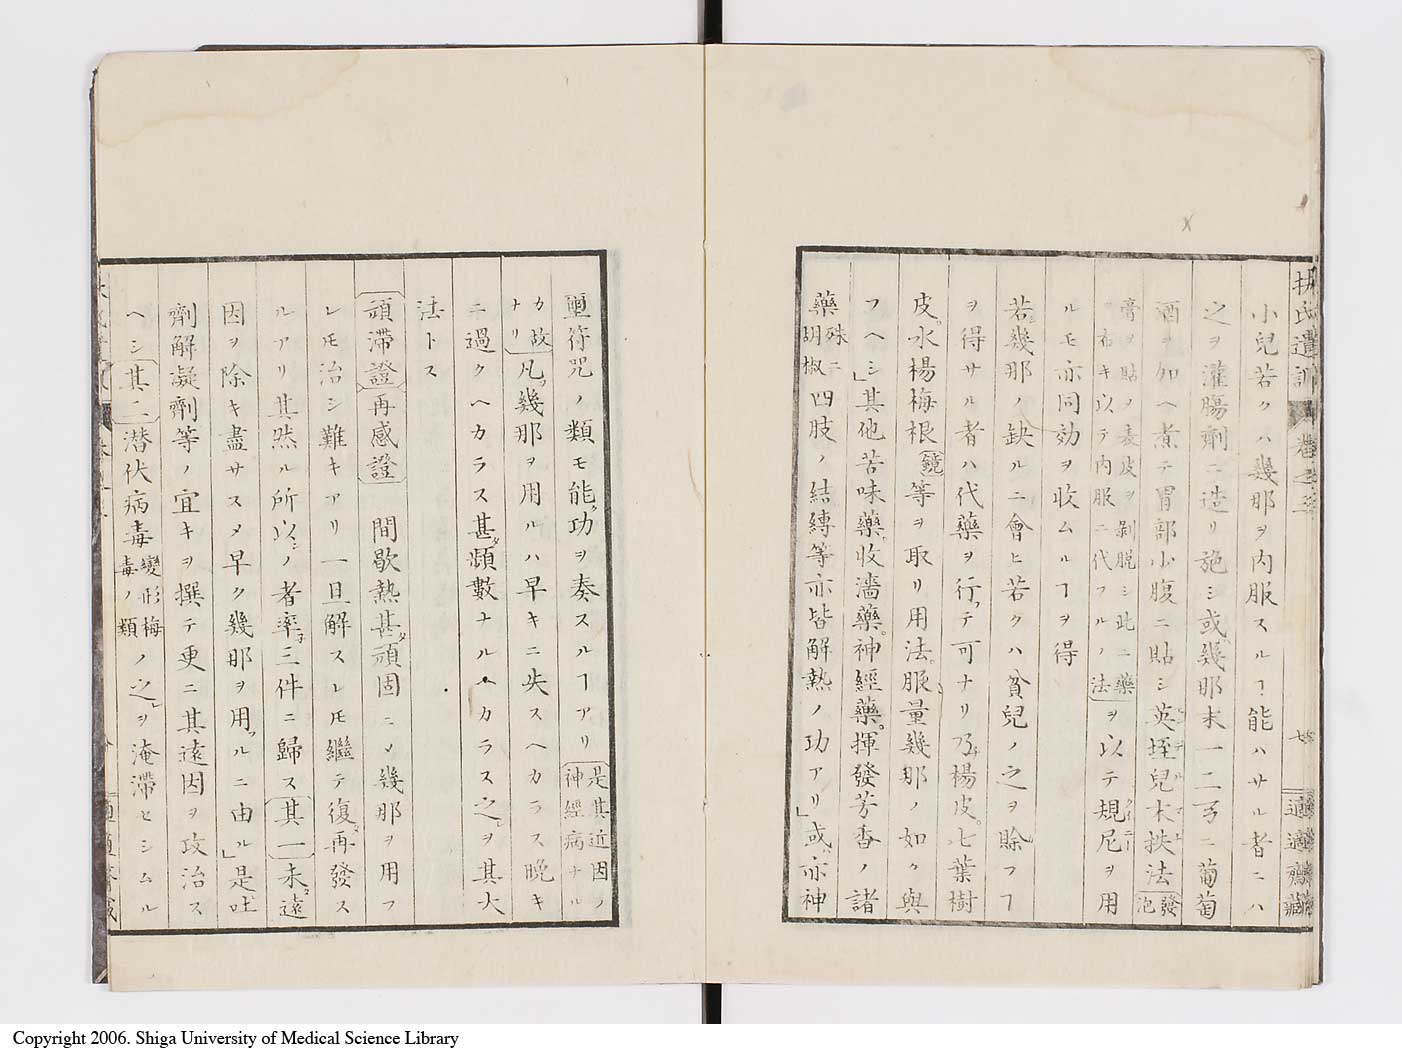 扶氏遺訓 卷之三
適適齋藏
小兒若クハ幾那ヲ内服スルヿ能ハサル者ニハ
之ヲ灌腸劑ニ造リ施シ或幾那末一二弓ニ葡萄
酒ヲ加ヘ煮テ胃部小腹ニ貼シ英垤兒木挾法發泡
膏ヲ貼メ表皮ヲ剥脱シ此ニ藥
布キ以テ内服ニ代フルノ法ヲ以テ規尼ヲ用
ルモ亦同効ヲ收ムルヿヲ得
若幾那ノ缺ルニ會ヒ若クハ貧兒ノ之ヲ賒フヿ
ヲ得サル者ハ代藥ヲ行テ可ナリ乃楊皮七葉樹
皮水楊梅根鏡等ヲ取リ用法服量幾那ノ如ク與
フヘシ」其他苦味藥收濇藥神經藥揮發芳香ノ諸
藥殊ニ胡椒四肢ノ結縛等亦皆解熱ノ功アリ」或亦神
符咒ノ類モ能功ヲ奏スルヿアリ是其近因ノ神經病ナル
カ故ナリ凡幾那ヲ用ルハ早キニ失スヘカラス晩キ
ニ過クヘカラス甚頻數ナルヘカラス之ヲ其大
法トス
頑滯證再感證 間歇熱甚頑固ニメ幾那ヲ用フ
レモ治シ難キアリ一旦解スレモ繼テ復再發ス
ルアリ其然ル所以ノ者率三件ニ歸ス其一未遠
因ヲ除キ盡サスメ早ク幾那ヲ用ルニ由ル」是吐
劑解凝劑等ノ宜キヲ撰テ更ニ其遠因ヲ攻治ス
ヘシ其二潜伏病毒變形梅毒ノ類ノ之ヲ淹滯セシムル
Copyright 2006. Shiga University of Medical Science Library